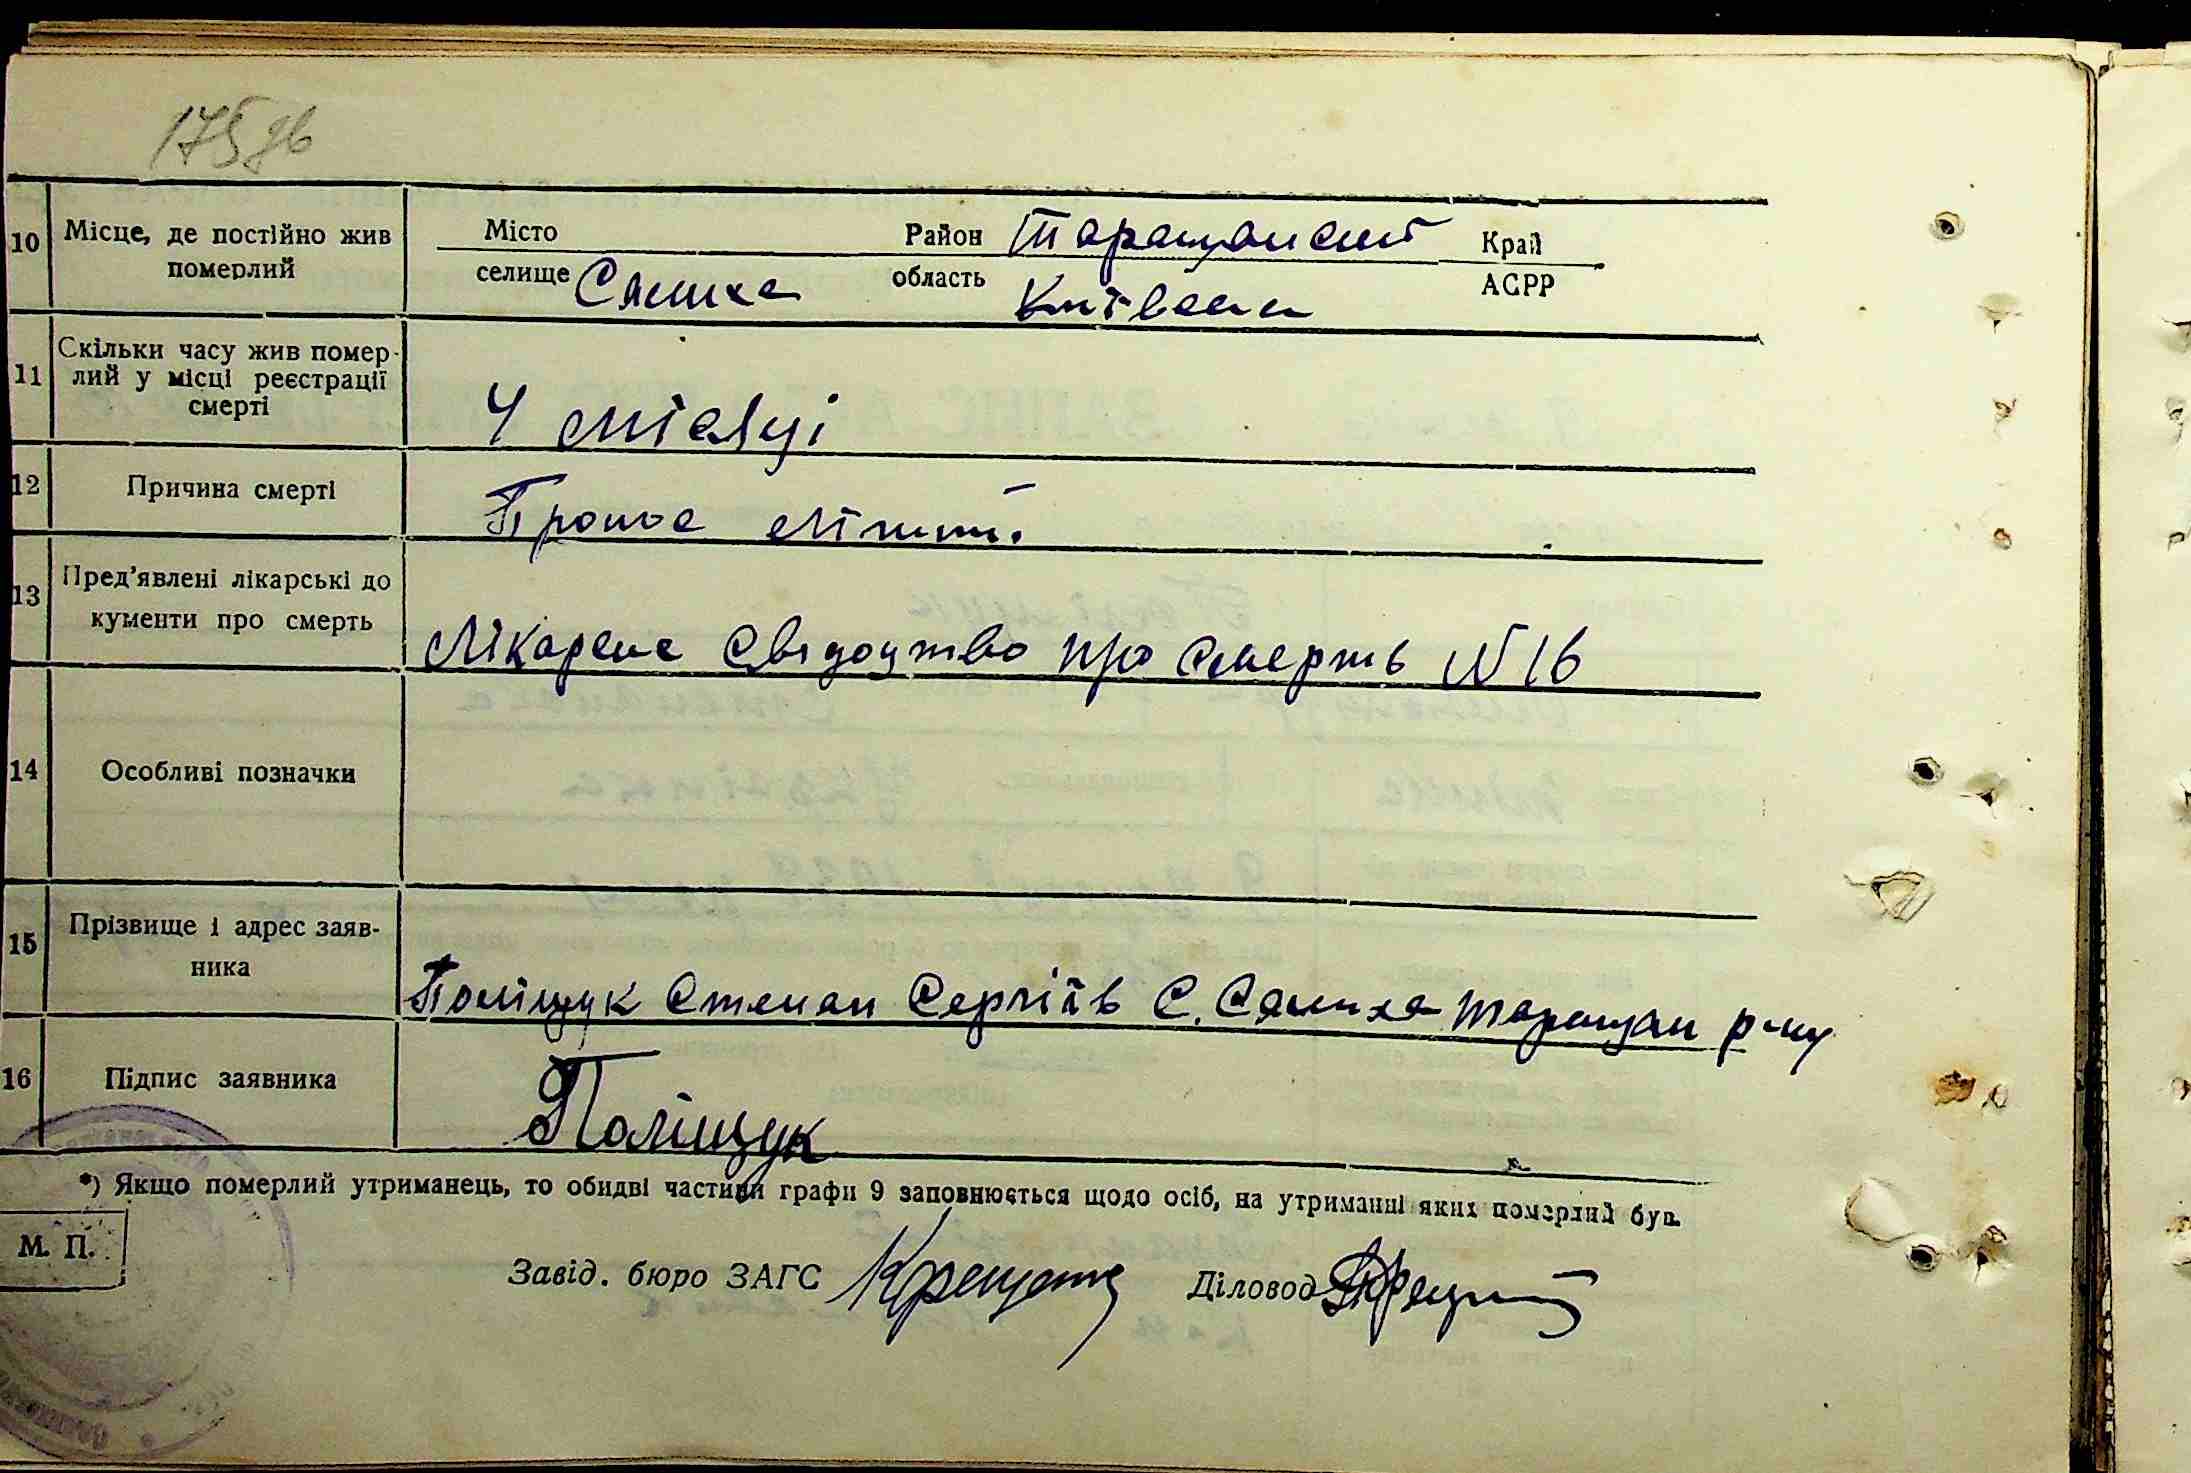 175 зв
10 Місце, де постійно жив померлий
Місто Район Таращанский Край
селище Салиха область Київська АСРР
11 Скільки часу жив померлий у місці реєстрації смерті
4 місяці
12 Причина смерті
13 Пред'явлені лікарські документи про смерть
Лікарське свідоцтво про смерть N 16
14 Особливі позначки
15 Прізвище і адрес заявника
Поліщук Степан Сергіїв С. Салиха Таращан р-ну
16 Підпис заявника
Поліщук
*) Якщо померлий утриманець, то обидві частини графи 9 заповнюється щодо осіб, на утриманні яких померлий був.
М. П.
Завід. бюро ЗАГС Діловод